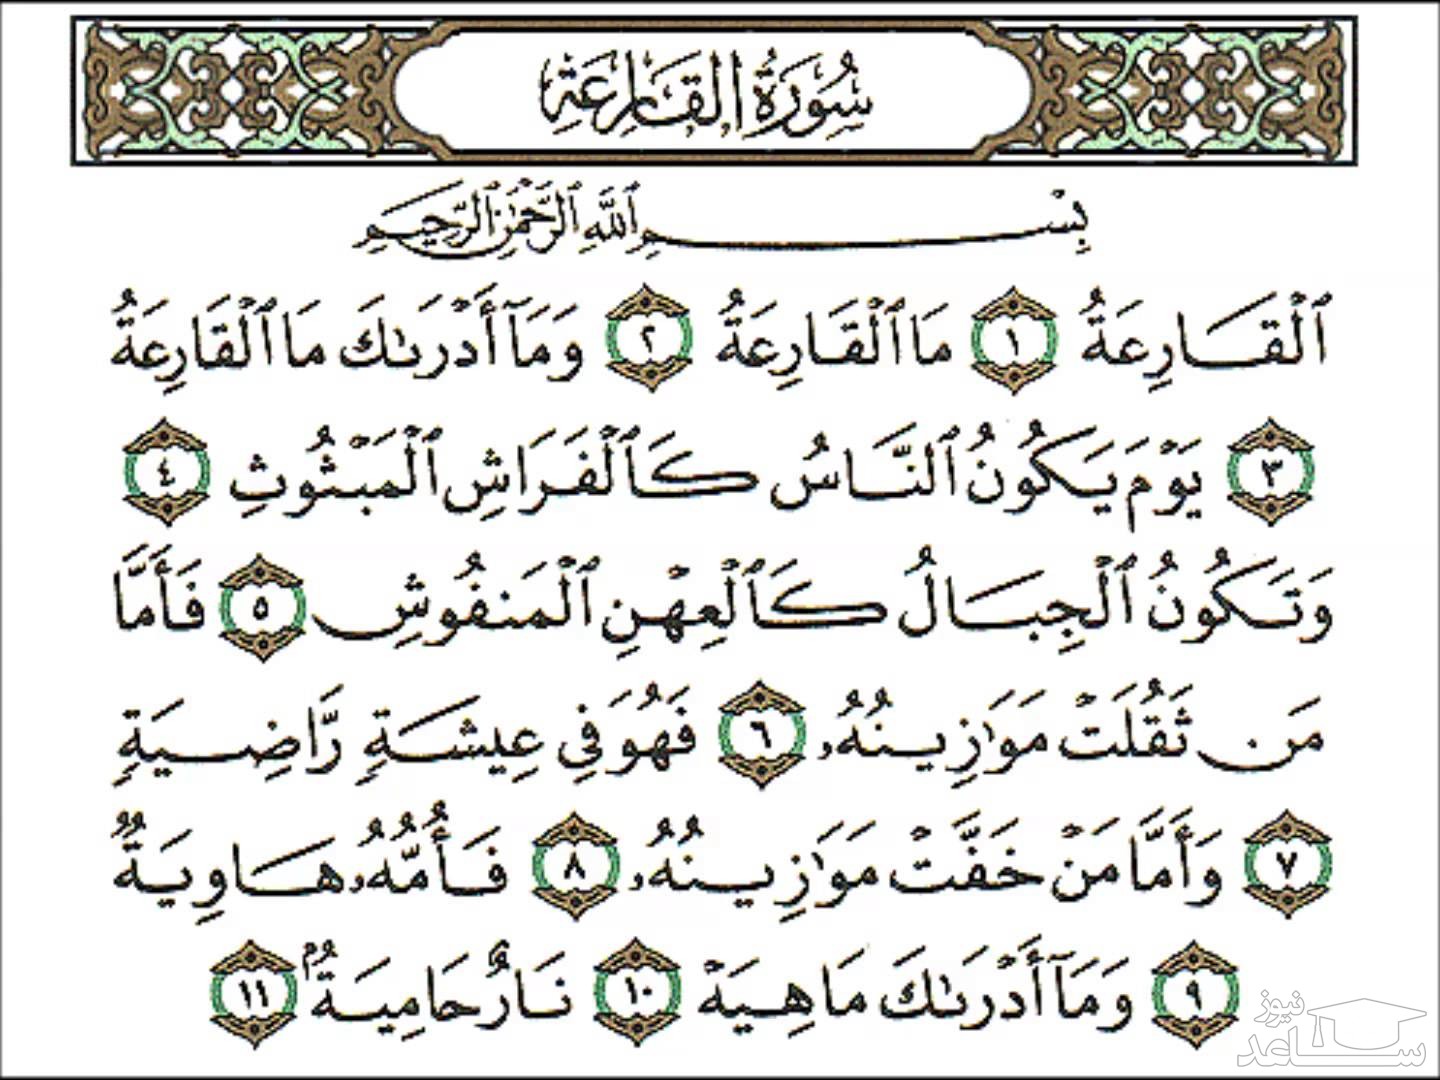 سُورَةُ القَارِعَةِ
بِسْمِ ٱللَّهِ ٱلرَّحْمَٰنِ ٱلرَّحِيمِ
ٱلْقَارِعَةُ ١ مَا ٱلْقَارِعَةُ ٢ وَمَآ أَدْرَىٰكَ مَا ٱلْقَارِعَةُ
٣ يَوْمَ يَكُونُ ٱلنَّاسُ كَٱلْفَرَاشِ ٱلْمَبْثُوثِ ٤
وَتَكُونُ ٱلْجِبَالُ كَٱلْعِهْنِ ٱلْمَنفُوشِ ٥ فَأَمَّا
مَن ثَقُلَتْ مَوَٰزِينُهُۥ ٦ فَهُوَ فِي عِيشَةٍ رَّاضِيَةٍ
٧ وَأَمَّا مَنْ خَفَّتْ مَوَٰزِينُهُۥ ٨ فَأُمُّهُۥ هَاوِيَةٌ
٩ وَمَآ أَدْرَىٰكَ مَا هِيَهْ ١٠ نَارٌ حَامِيَةٌۢ ١١
نیوز
ساعد